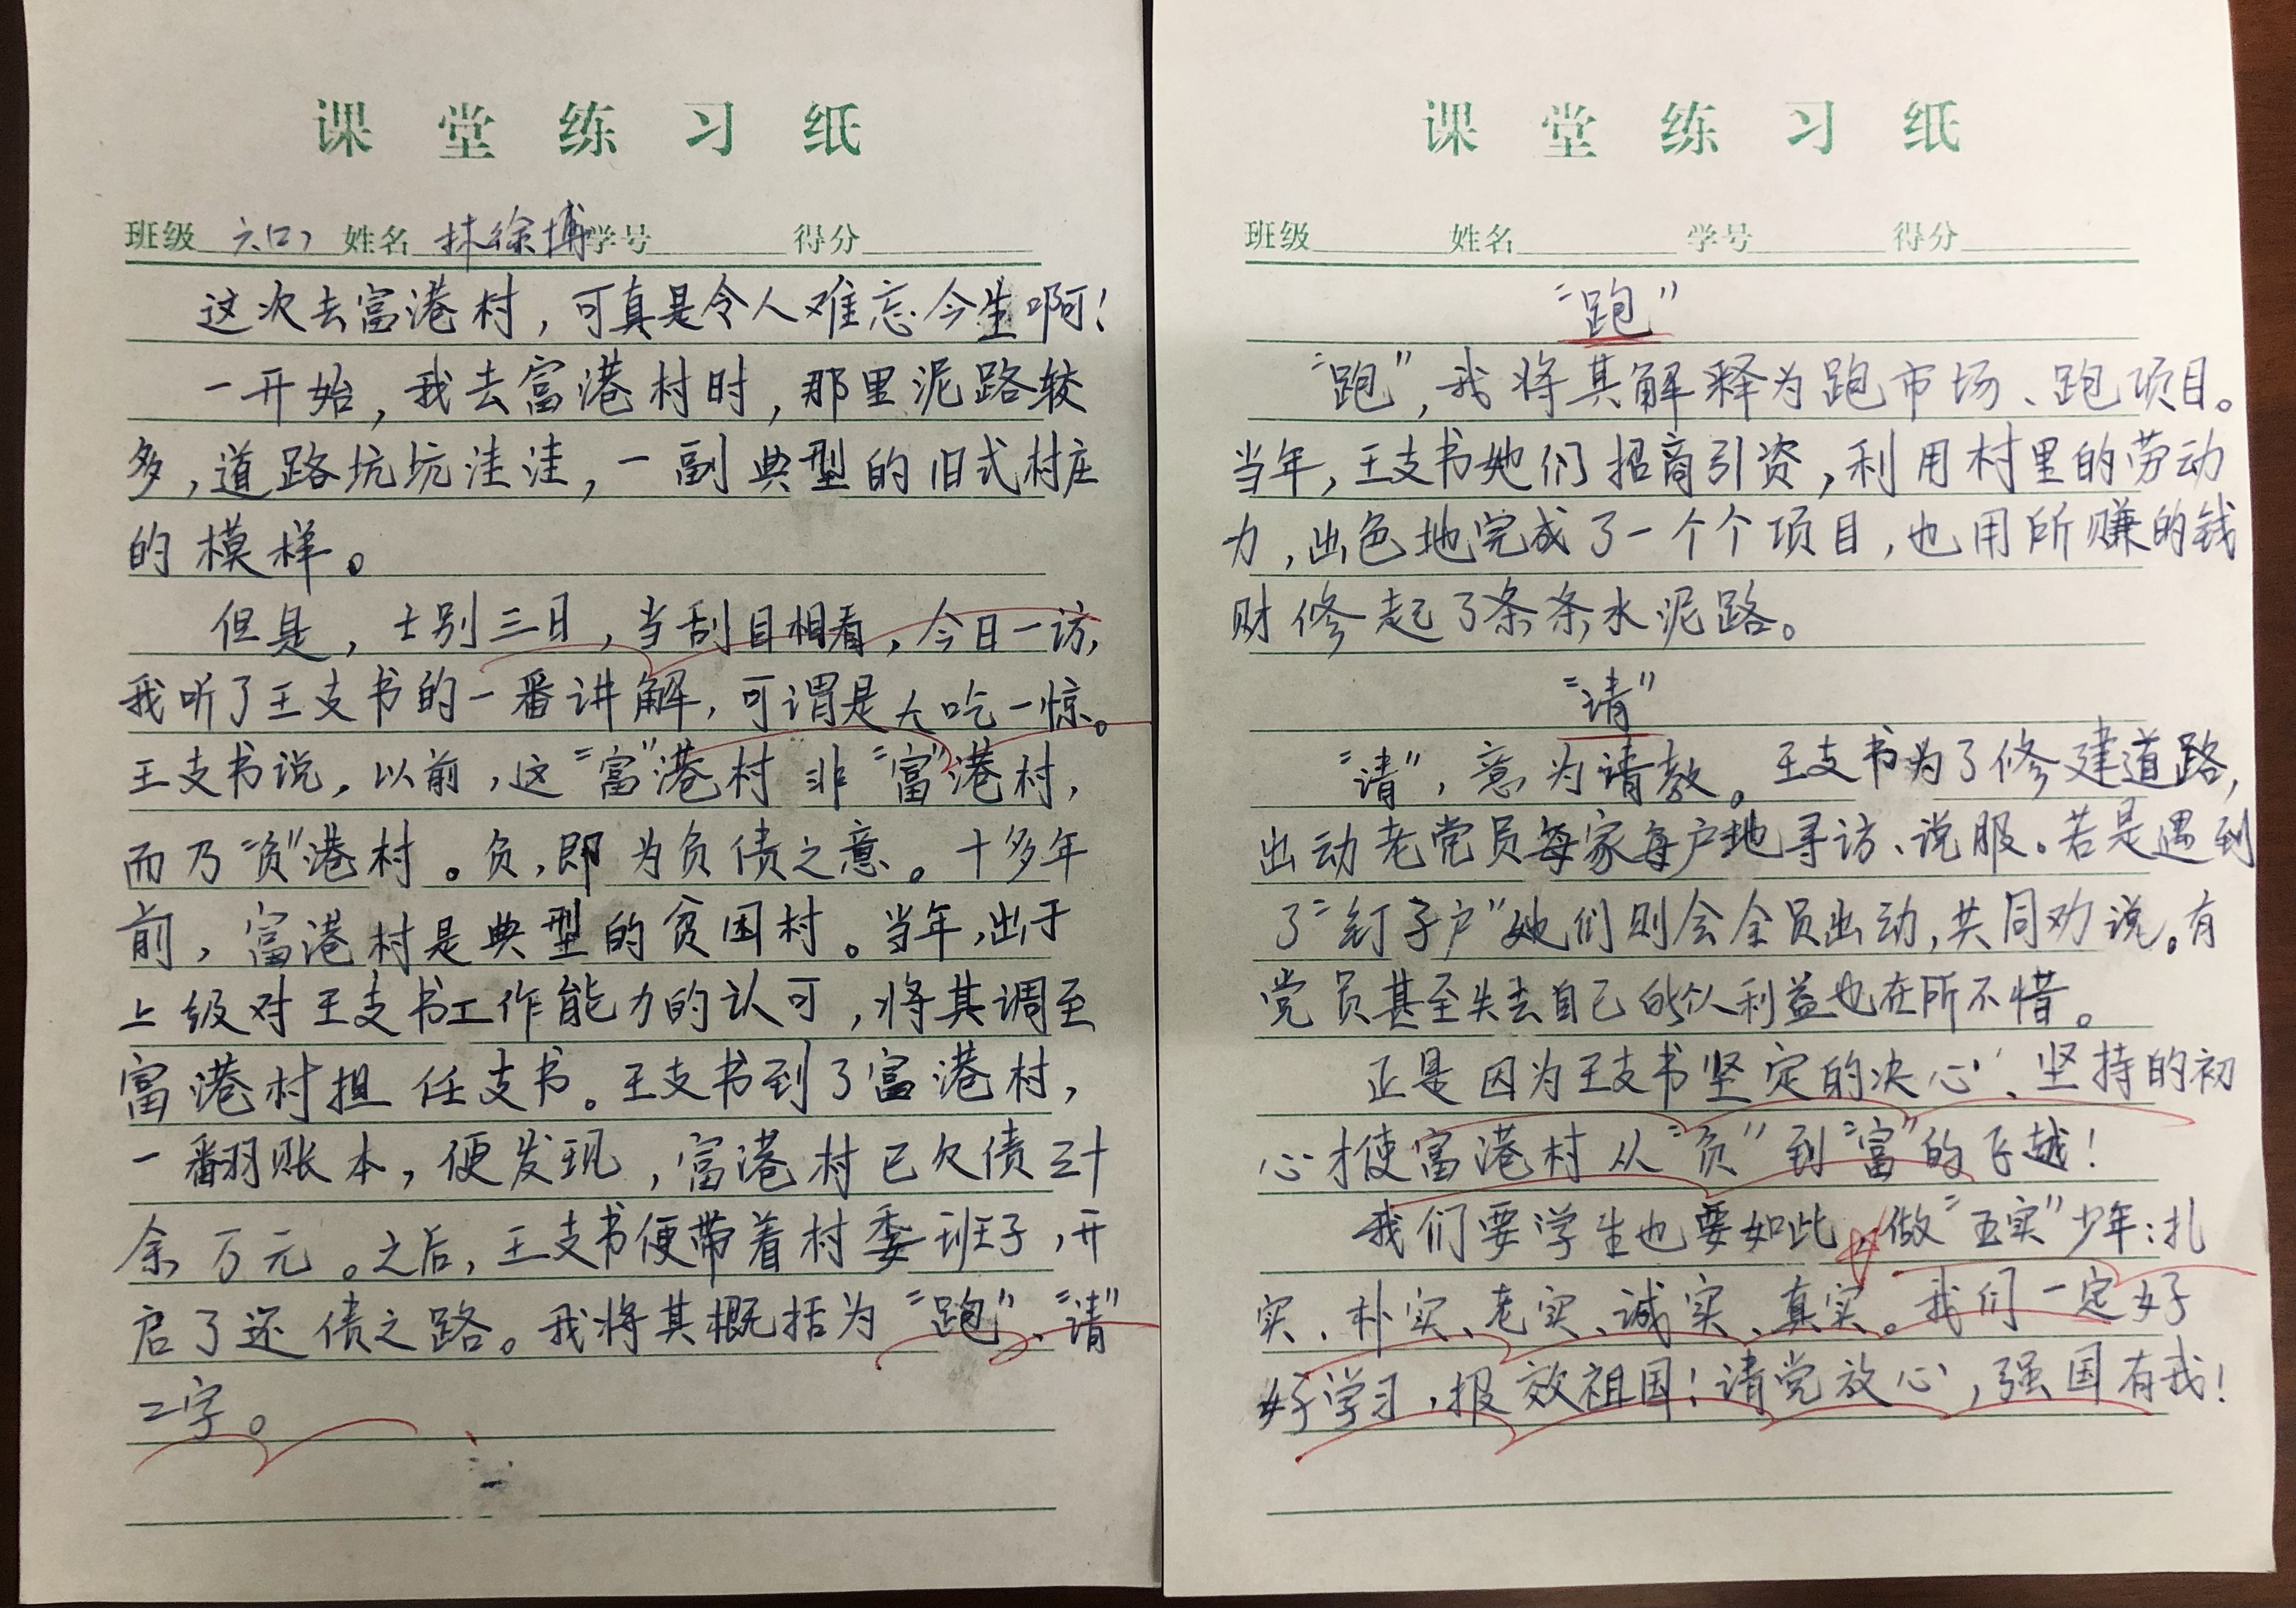 课堂练习纸
班级 六(2) 姓名 林徐博 学号 得分
这次去富港村，可真是令人难忘今生啊！
一开始，我去富港村时，那里泥路较
多，道路坑坑洼洼，一副典型的旧式村庄
的模样。
但是，士别三日，当刮目相看，今日一访，
我听了王支书的一番讲解，可谓是大吃一惊。
王支书说，以前，这“富”港村非“富”港村，
而乃“负”港村。负，即为负债之意。十多年
前，富港村是典型的贫困村。当年，出于
上级对王支书工作能力的认可，将其调至
富港村担任支书。王支书到了富港村，
一翻账本，便发现，富港村已欠债三十
余万元。之后，王支书便带着村委班子，开
启了还债之路。我将其概括为“跑”、“请”
二字。
课堂练习纸
班级 姓名 学号 得分
“跑”
“跑”，我将其解释为跑市场、跑项目。
当年，王支书她们招商引资，利用村里的劳动
力，出色地完成了一个个项目，也用所赚的钱
财修起了条条水泥路。
“请”
“请”，意为请教。王支书为了修建道路，
出动老党员每家每户地寻访、说服。若是遇到
了“钉子户”她们则会全员出动，共同劝说。有
党员甚至失去自己的个人利益也在所不惜。
正是因为王支书坚定的决心、坚持的初
心才使富港村从“负”到“富”的飞越！
我们要学生也要如此，做“五实”少年：扎
实、朴实、老实、诚实、真实。我们一定好
好学习，报效祖国！请党放心，强国有我！